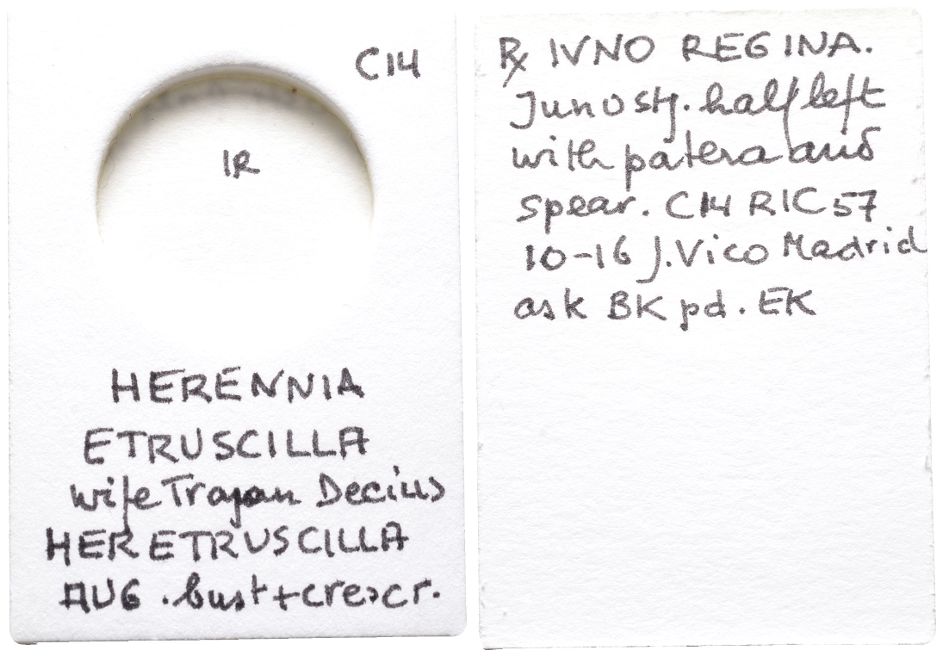 C14
IR
HERENNIA
ETRUSCILLA
wife Trajan Decius
HER ETRUSCILLA
AUG . bust + crescr.
R IVNO REGINA.
Juno stg. half left
with patera and
spear. C14 RIC 57
10-16 J. Vico Madrid
ask BK pd. EK